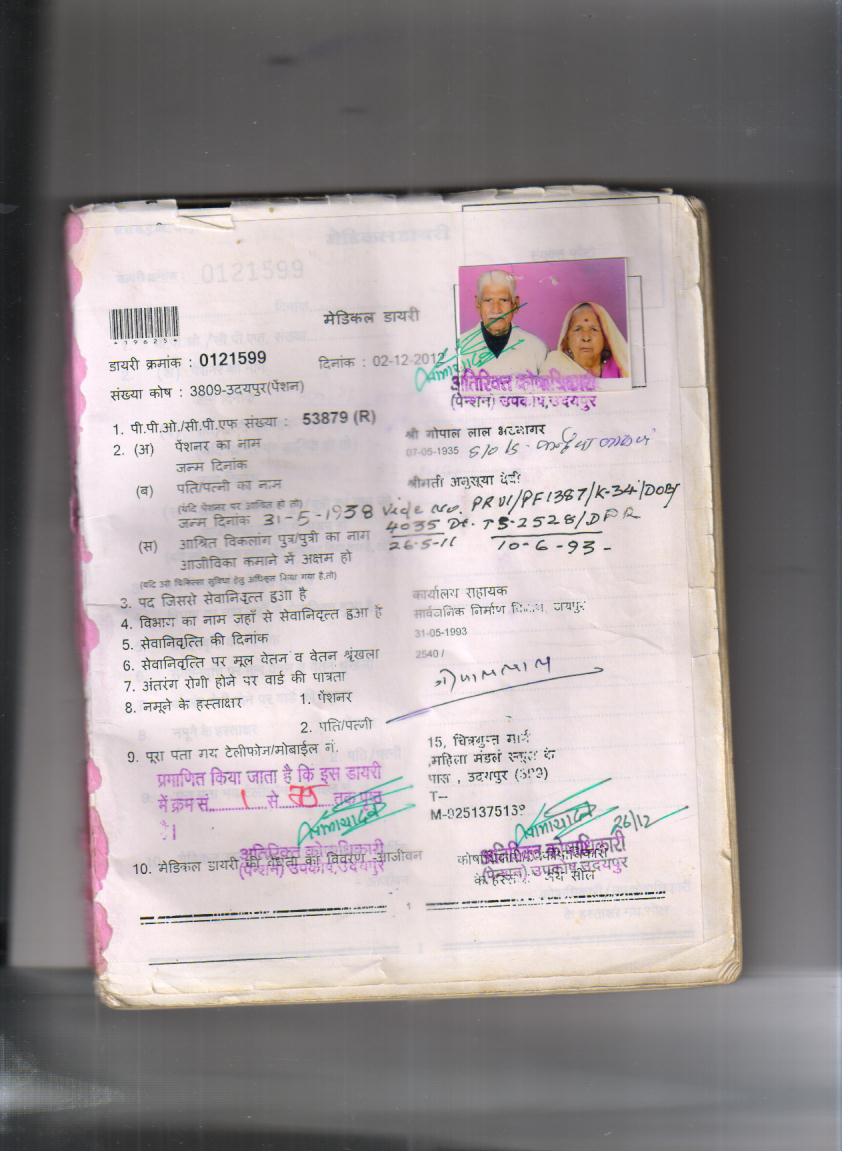 मेडिकल डायरी
डायरी क्रमांक : 0121599
दिनांक : 02-12-2012
संख्या कोष : 3809-उदयपुर(पेंशन)
अतिरिक्त कोषाधिकारी
(पेन्शन) उपकोष,उदयपुर
1. पी.पी.ओ./सी.पी.एफ संख्या : 53879 (R)
2. (अ) पेंशनर का नाम श्री गोपाल लाल भटनागर
जन्म दिनांक 07-05-1935 S/o
(ब) पति/पत्नी का नाम श्रीमती अनुसूया देवी
(यदि पेंशनर पर आश्रित हो तो)
जन्म दिनांक 31-5-1938 Vide No. PRVI/PF1387/K-34/DOB/
4035 Dt. TS-2528/DPR
26-5-11 10-6-93-
(स) आश्रित विकलांग पुत्र/पुत्री का नाग
आजीविका कमाने में अक्षम हो
(यदि उसे चिकित्सा सुविधा हेतु अधिकृत किया गया है,तो)
3. पद जिससे सेवानिवृत्त हुआ है कार्यालय सहायक
4. विभाग का नाम जहाँ से सेवानिवृत्त हुआ है सार्वजनिक निर्माण विभाग, जयपुर
5. सेवानिवृत्ति की दिनांक 31-05-1993
6. सेवानिवृत्ति पर मूल वेतन व वेतन श्रृंखला 2540 /
7. अंतरंग रोगी होने पर वार्ड की पात्रता
8. नमूने के हस्ताक्षर 1. पेंशनर गोपाललाल
2. पति/पत्नी
9. पूरा पता मय टेलीफोन/मोबाईल नं. 15, चित्रगुप्त मार्ग
,महिला मंडल स्कूल के
पास , उदयपुर
T--
प्रमाणित किया जाता है कि इस डायरी
में क्रम सं. 1 से 75 तक पृष्ठ
है।
26/12
अतिरिक्त कोषाधिकारी
(पेन्शन) उपकोष,उदयपुर
अतिरिक्त कोषाधिकारी
(पेन्शन) उपकोष,उदयपुर
10. मेडिकल डायरी की वैधता का विवरण -आजीवन
के हस्ताक्षर मय सील
1